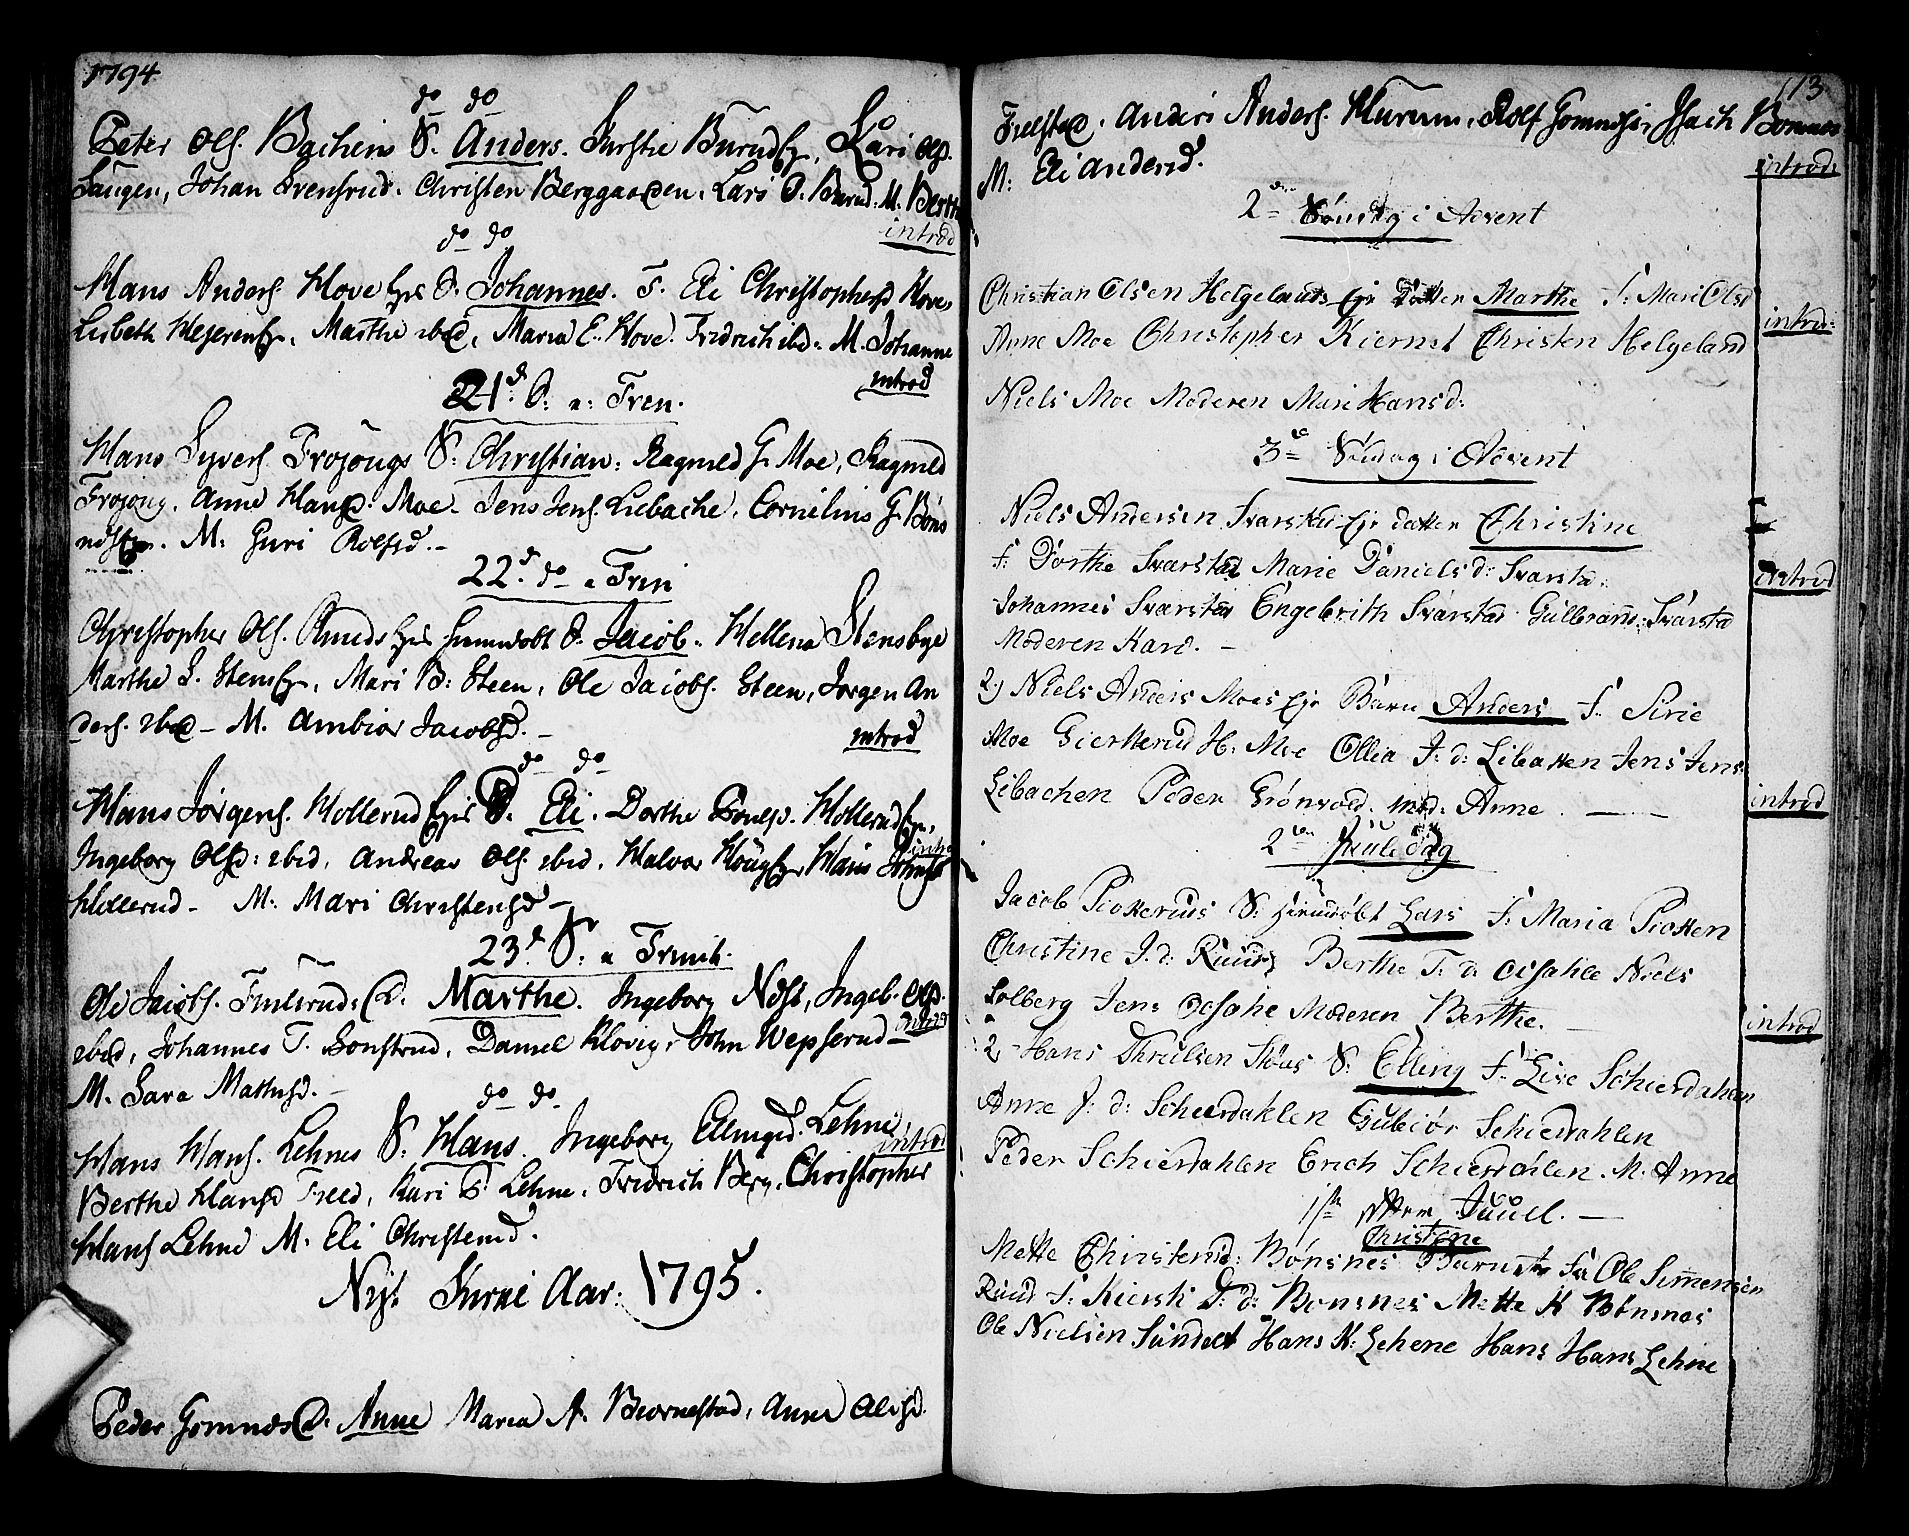 1794
do do
Peter Ols. Bachens S. Anders. Kirstie Burud Ey, Kari Ols.
Haugen, Johan Svensrud. Christen Berggaarden. Lars O. Burud. M. Berthe
introd
do do
Hans Anders. Hove Eyes S. Johannes. F. Eli Christophersd Hove,
Lisbeth Meyeren Ey. Marthe ibid, Maria E. Hove. Fridrich ibid. M. Johanne
introd
21d S: a: Tren.
Hans Syvers. Frøjougs S: Christian: Ragnild G. Moe, Ragnild
Frøjoug. Anne Hansd. Moe. Jens Jens. Liebache, Cornelius G. Bøns
nes Ey. M. Guri Rolfsd.-
22d do a Treni
Christopher Ols. Ruuds Eyes hjemmdøbt S. Jacob. Hellena Stensbye
Marthe L. Steens Ey. Mari B: Steen, Ole Jacobs. Steen, Jørgen An
ders. ibid - M. Ambior Jacobsd. -
introd
do do
Hans Jørgens. Hollerud Eyes D. Eli. Dorthe Poulsd. Hollerud Ey.
introd
Ingeborg Olsd: ibid, Andreas Ols. ibid. Halvor Houg Ey Hans Johns
Hollerud - M. Mari Christensd -
23d S: a Trenit.
Ole Jacobs. Finlsruds D. Marthe. Ingeborg Ness, Ingeb. Olsd.
introd
ibid, Johannes T. Sonsterud. Daniel Klovig, John Wepserud -
M. Sara Mathisd. -
do do
Hans Hans. Lehnes S: Hans. Ingeborg Ellingsd. Lehne
introd
Berthe Hansd Freed, Kari P. Lehne. Fridrich Berg. Christopher
Hans Lehne M. Eli Christensd.
Nyt Kirke Aar: 1795.
Peder Gomnæs D: Anne Maria A. Biørnestad, Anne Olesd.
113
Fielstad. Anders Anders. Hurum, Rolf Gomnes, Isach Bonnes
M: Eli Andersd.
introd:
2den Søndag i Advent
Christian Olsen Helgelands Eje Datter Marthe F: Mari Olsd
introd:
Anne Moe Christopher Kiernet Christen Helgeland
Niels Moe Moderen Mari Hansd:
3de Søndag i Advent
Niels Andersen Svarstad Eje datter Christine
F: Dorthe Svarstad Marie Daniels d: Svarstad:
introd
Johannes Svarstad Engebrith Svarstad Gulbrand: Svarstad
Moderen Kari. -
2) Niels Anders Moes Eje Barn Anders F: Sirie
Moe Gierterud H: Moe Ollia J: d: Libakken Jens Jens
Libachen Peder Grønvold. mod: Anne. -
introd
2den Juule dag
Jacob Piokerius S: hjemdøbt Lars F: Maria Piokken
Christine J. d: Ruud Berthe T: d: Oesahle Niels
Solberg Jens Oesahe Moderen Berthe. -
introd
2) Hans Thrulsen Støus S: Elling F: Lise Schierdahlen
Anne J: d: Schierdahlen Gubiør Schierdahlen
Peder Schierdahlen Erich Schierdahlen. M: Anne
1ste efter Juul. -
Christine
Mette Christensd: Bønsnes Barnet Fa: Ole Simmensen
Ruud F: Kiersti D: d: Bonsnes Mette K Bønsnes
Ole Nielsen Sundelt Hans K: Lehene Hans Hans Lehne